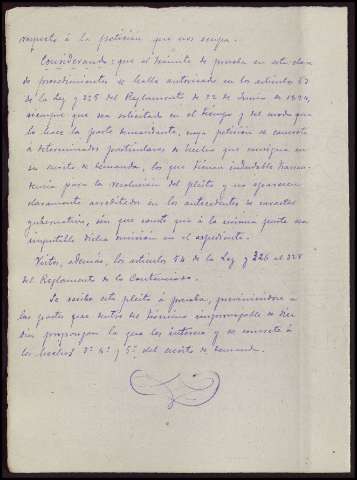 respecto á la petición que nos ocupa.
Considerando: que el trámite de prueba en esta clase
de procedimientos se halla autorizado en los artículos 53
de la Ley y 325 del Reglamento de 22 de Junio de 1894,
siempre que sea solicitado en el tiempo y del modo que
lo hace la parte demandante, cuya petición se concreta
á determinados particulares de hecho que consigna en
su escrito de demanda, los que tienen indudable trascen-
dencia para la resolución del pleito y no aparecen
claramente acreditados en los antecedentes de caracter
gubernativo, sin que conste que á la misma parte sea
imputible dicha omisión en el expediente.
Vistos, además, los artículos 54 de la Ley y 326 al 328
del Reglamento de lo Contencioso.
Se recibe este pleito á prueba, previniéndose á
las partes que dentro del término improrrogable de diez
dias propongan la que les interese y se concrete á
los hechos 3º 4º y 5º del escrito de demanda.